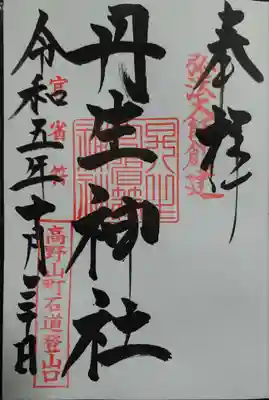 奉拝
弘法大師創建
丹生神社
官省符
令和五年十月二十日
高野山町石道登山口